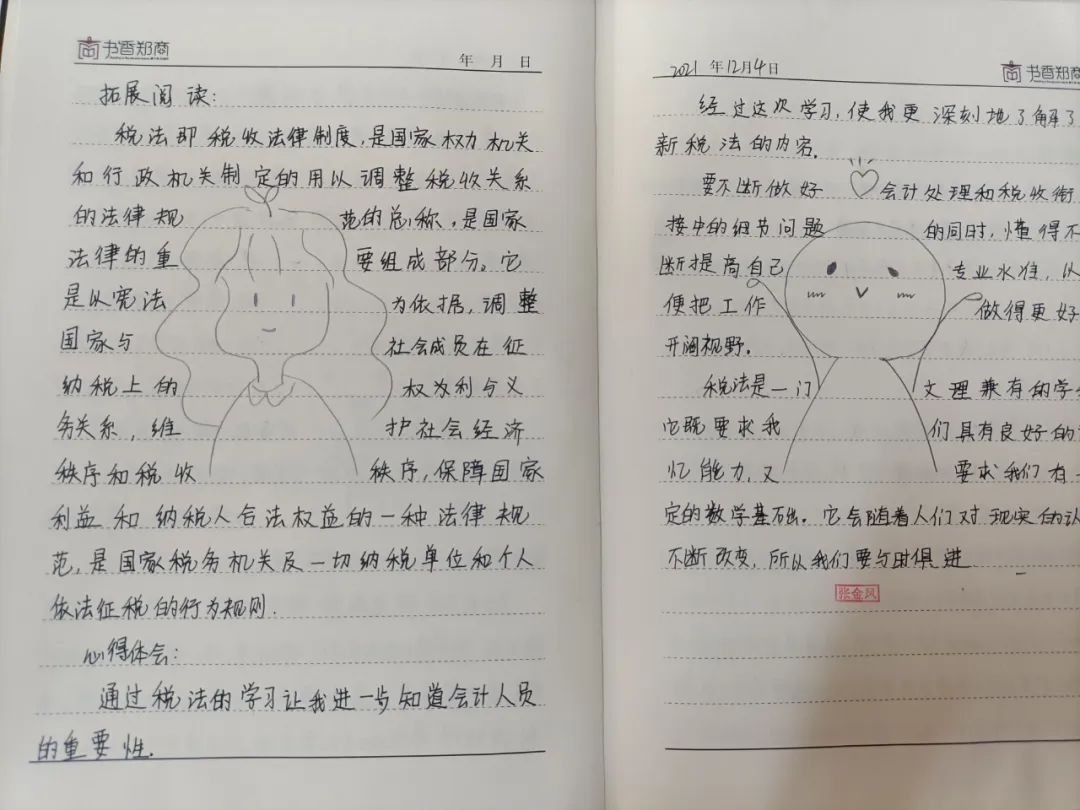 书香郑商
年 月 日
拓展阅读:
税法即税收法律制度,是国家权力机关
和行政机关制定的用以调整税收关系
的法律规范的总称,是国家
法律的重要组成部分。它
是以宪法为依据,调整
国家与社会成员在征
纳税上的权为利与义
务关系,维护社会经济
秩序和税收秩序,保障国家
利益和纳税人合法权益的一种法律规
范,是国家税务机关及一切纳税单位和个人
依法征税的行为规则.
心得体会:
通过税法的学习让我进一步知道会计人员
的重要性.
2021年12月4日
书香郑商
经过这次学习,使我更深刻地了解了
新税法的内容.
要不断做好会计处理和税收衔
接中的细节问题的同时,懂得不
断提高自己专业水准,以
便把工作做得更好
开阔视野.
税法是一门文理兼有的学
它既要求我们具有良好的
忆能力,又要求我们有
定的数学基础。它会随着人们对现实的认
不断改变,所以我们要与时俱进
张金凤